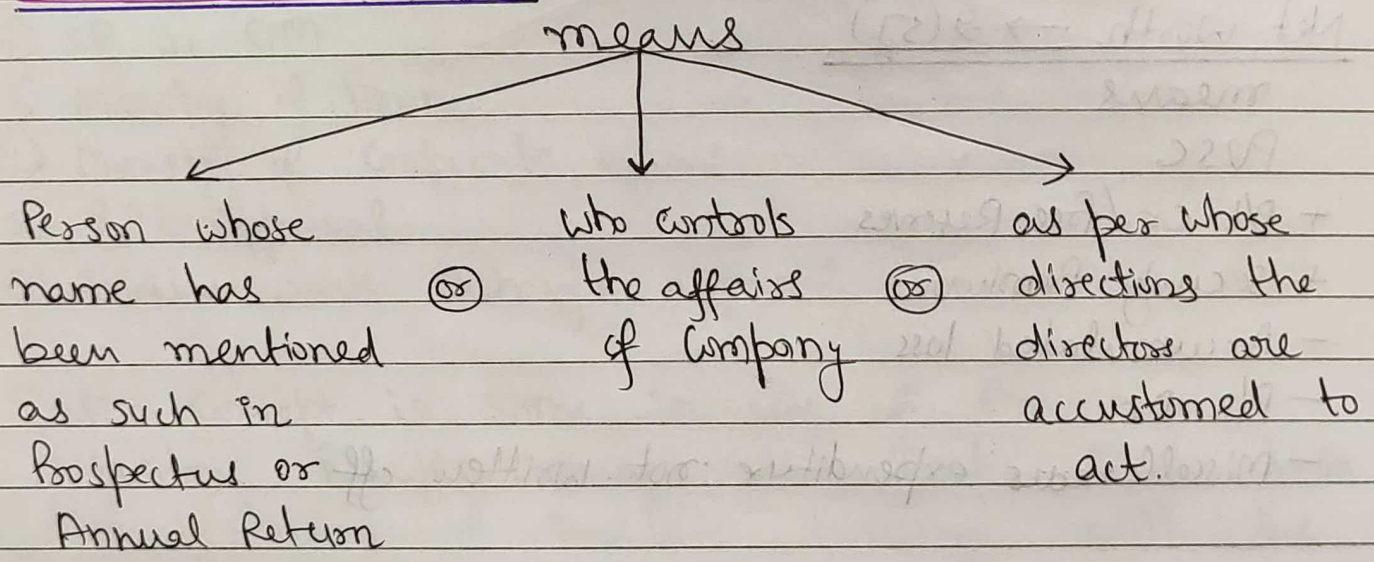 means
Person whose
name has
been mentioned
as such in
Prospectus or
Annual Return
or
who controls
the affairs
of Company
or
as per whose
directions the
directors are
accustomed to
act.